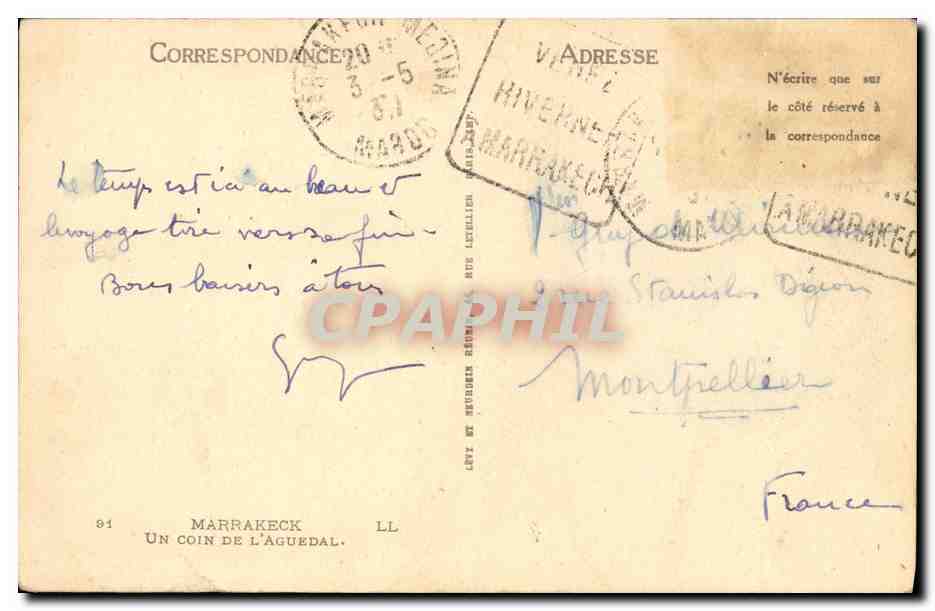 CORRESPONDANCE
ADRESSE
MARRAKECH MEDINA
20
3 -5
37
MAROC
VENEZ
HIVERNER
A MARRAKECH
N'écrire que sur
le côté réservé à
la correspondance
NE
A MARRAKEC
MA
Le temps est ici au beau et
le voyage tire vers sa fin -
Bons baisers à tous
2 rue Stanislas Digeon
Montpellier
France
CPAPHIL
LÉVY ET NEURDEIN RÉUNIS, 44, RUE LETELLIER, PARIS-IMP.
91 MARRAKECK LL
UN COIN DE L'AGUEDAL.